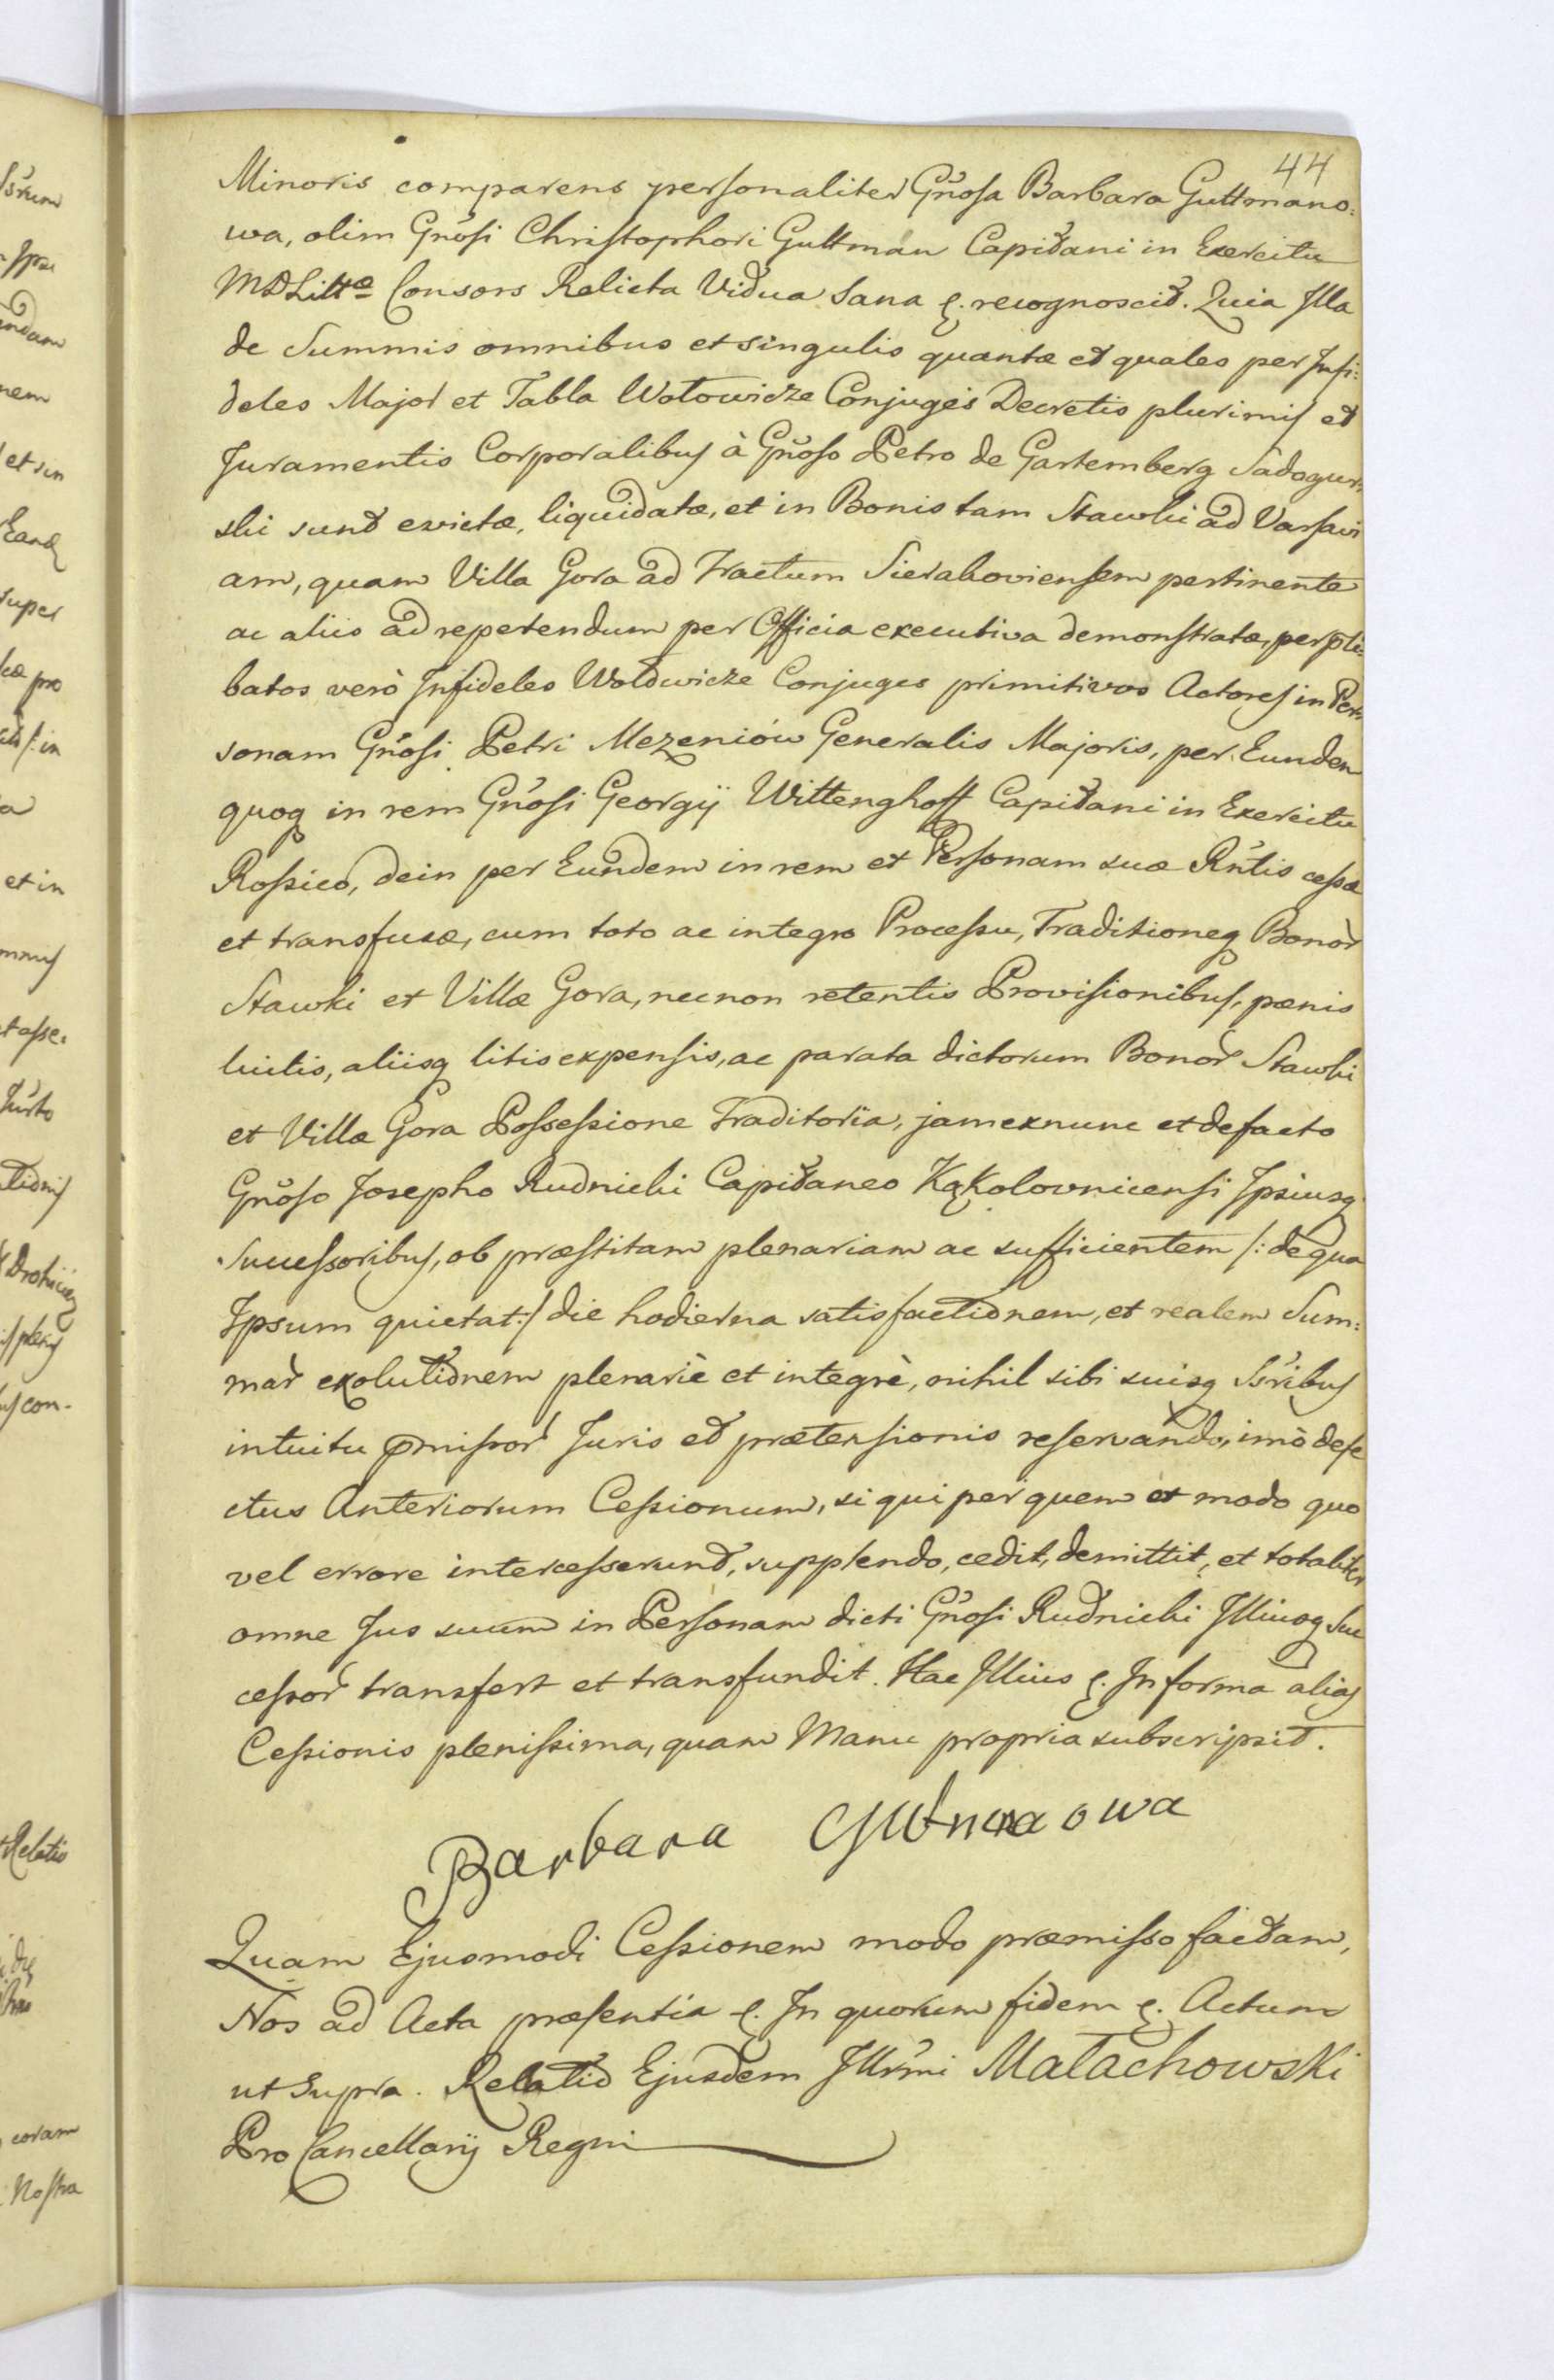 44
Minoris comparens personaliter Gn̄osa Barbara Guttmano:
wa, olim Gn̄osi Christophori Guttman Capitani in Exercitu
MDLittæ Consors Relicta Vidua Sana &. recognoscit. Quia Illa
de Summis omnibus et singulis quantæ et quales per Infi:
deles Major et Tabla Wołowicze Conjuges Decretis plurimis et
Juramentis Corporalibus à Gn̄oso Petro de Gartemberg Sadogur:
ski sunt evictæ, liquidatæ, et in Bonis tam Stawki ad Varsavi
am, quam Villa Gora ad Tractum Sierakoviensem pertinente
ac aliis ad repetendum per Officia executiva demonstratæ, per p̄li:
batos verò Infideles Wołowicze Conjuges primitivos Actores in Per:
sonam Gn̄osi Petri Mezeniów Generalis Majoris, per Eundem
quoq in rem Gn̄osi Georgij Wittenghoff Capitani in Exercitu
Rossico, dein per Eundem in rem et Personam suæ Rn̄tis cessæ
et transfusæ, cum toto ac integro Processu, Traditioneq Bonor̄
Stawki et Villæ Gora, necnon retentis Provisionibus, pænis
luitis, aliisq litis expensis, ac parata dictorum Bonor̄ Stawki
et Villæ Gora Possessione Traditoria, jam exnunc et de facto
Gn̄oso Josepho Rudnicki Capitaneo Kąkolovnicensi Ipsiusq
Successoribus, ob præstitam plenariam ac sufficientem /: de qua
Ipsum quietat :/ die hodierna satisfactionem, et realem Sum:
mar̄ exolutionem plenariè et integrè, nihil sibi suisq Ss̄ribus
intuitu p̄missor̄ Juris et prætensionis reservando, imò defe
ctus Anteriorum Cessionum, si qui per quem et modo quo
vel errore intercesserunt, supplendo, cedit, demittit, et totaliter
omne Jus suum in Personam dicti Gn̄osi Rudnicki Illiusq Suc
cessor̄ transfert et transfundit. Hac Illius &. In forma alias
Cessionis plenissima, quam Manu propria subscripsit.
Barbara Gutmanowa
Quam Ejusmodi Cessionem modo præmisso factam,
Nos ad Acta præsentia &. In quorum fidem &. Actum
ut Supra. Relatio Ejusdem Illr̄mi Małachowski
Pro Cancellarij Regni